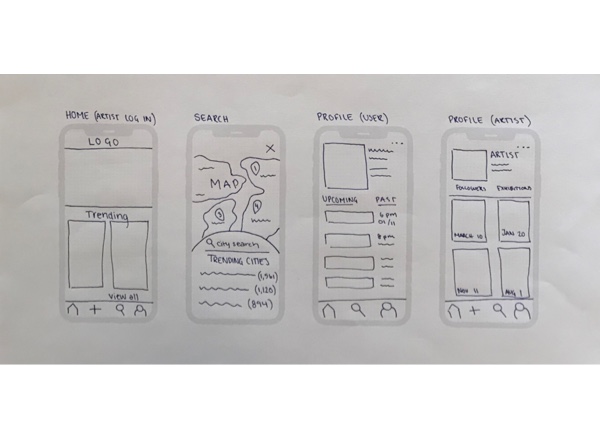 HOME (ARTIST LOG IN)
LOGO
Trending
View all
SEARCH
X
MAP
1
3
4
city search
TRENDING CITIES
(1,961)
(1,120)
(894)
PROFILE (USER)
UPCOMING PAST
6 pm
01/11
8 pm
PROFILE (ARTIST)
ARTIST
FOLLOWERS EXHIBITIONS
MARCH 10 JAN 20
NOV 11 AUG 1